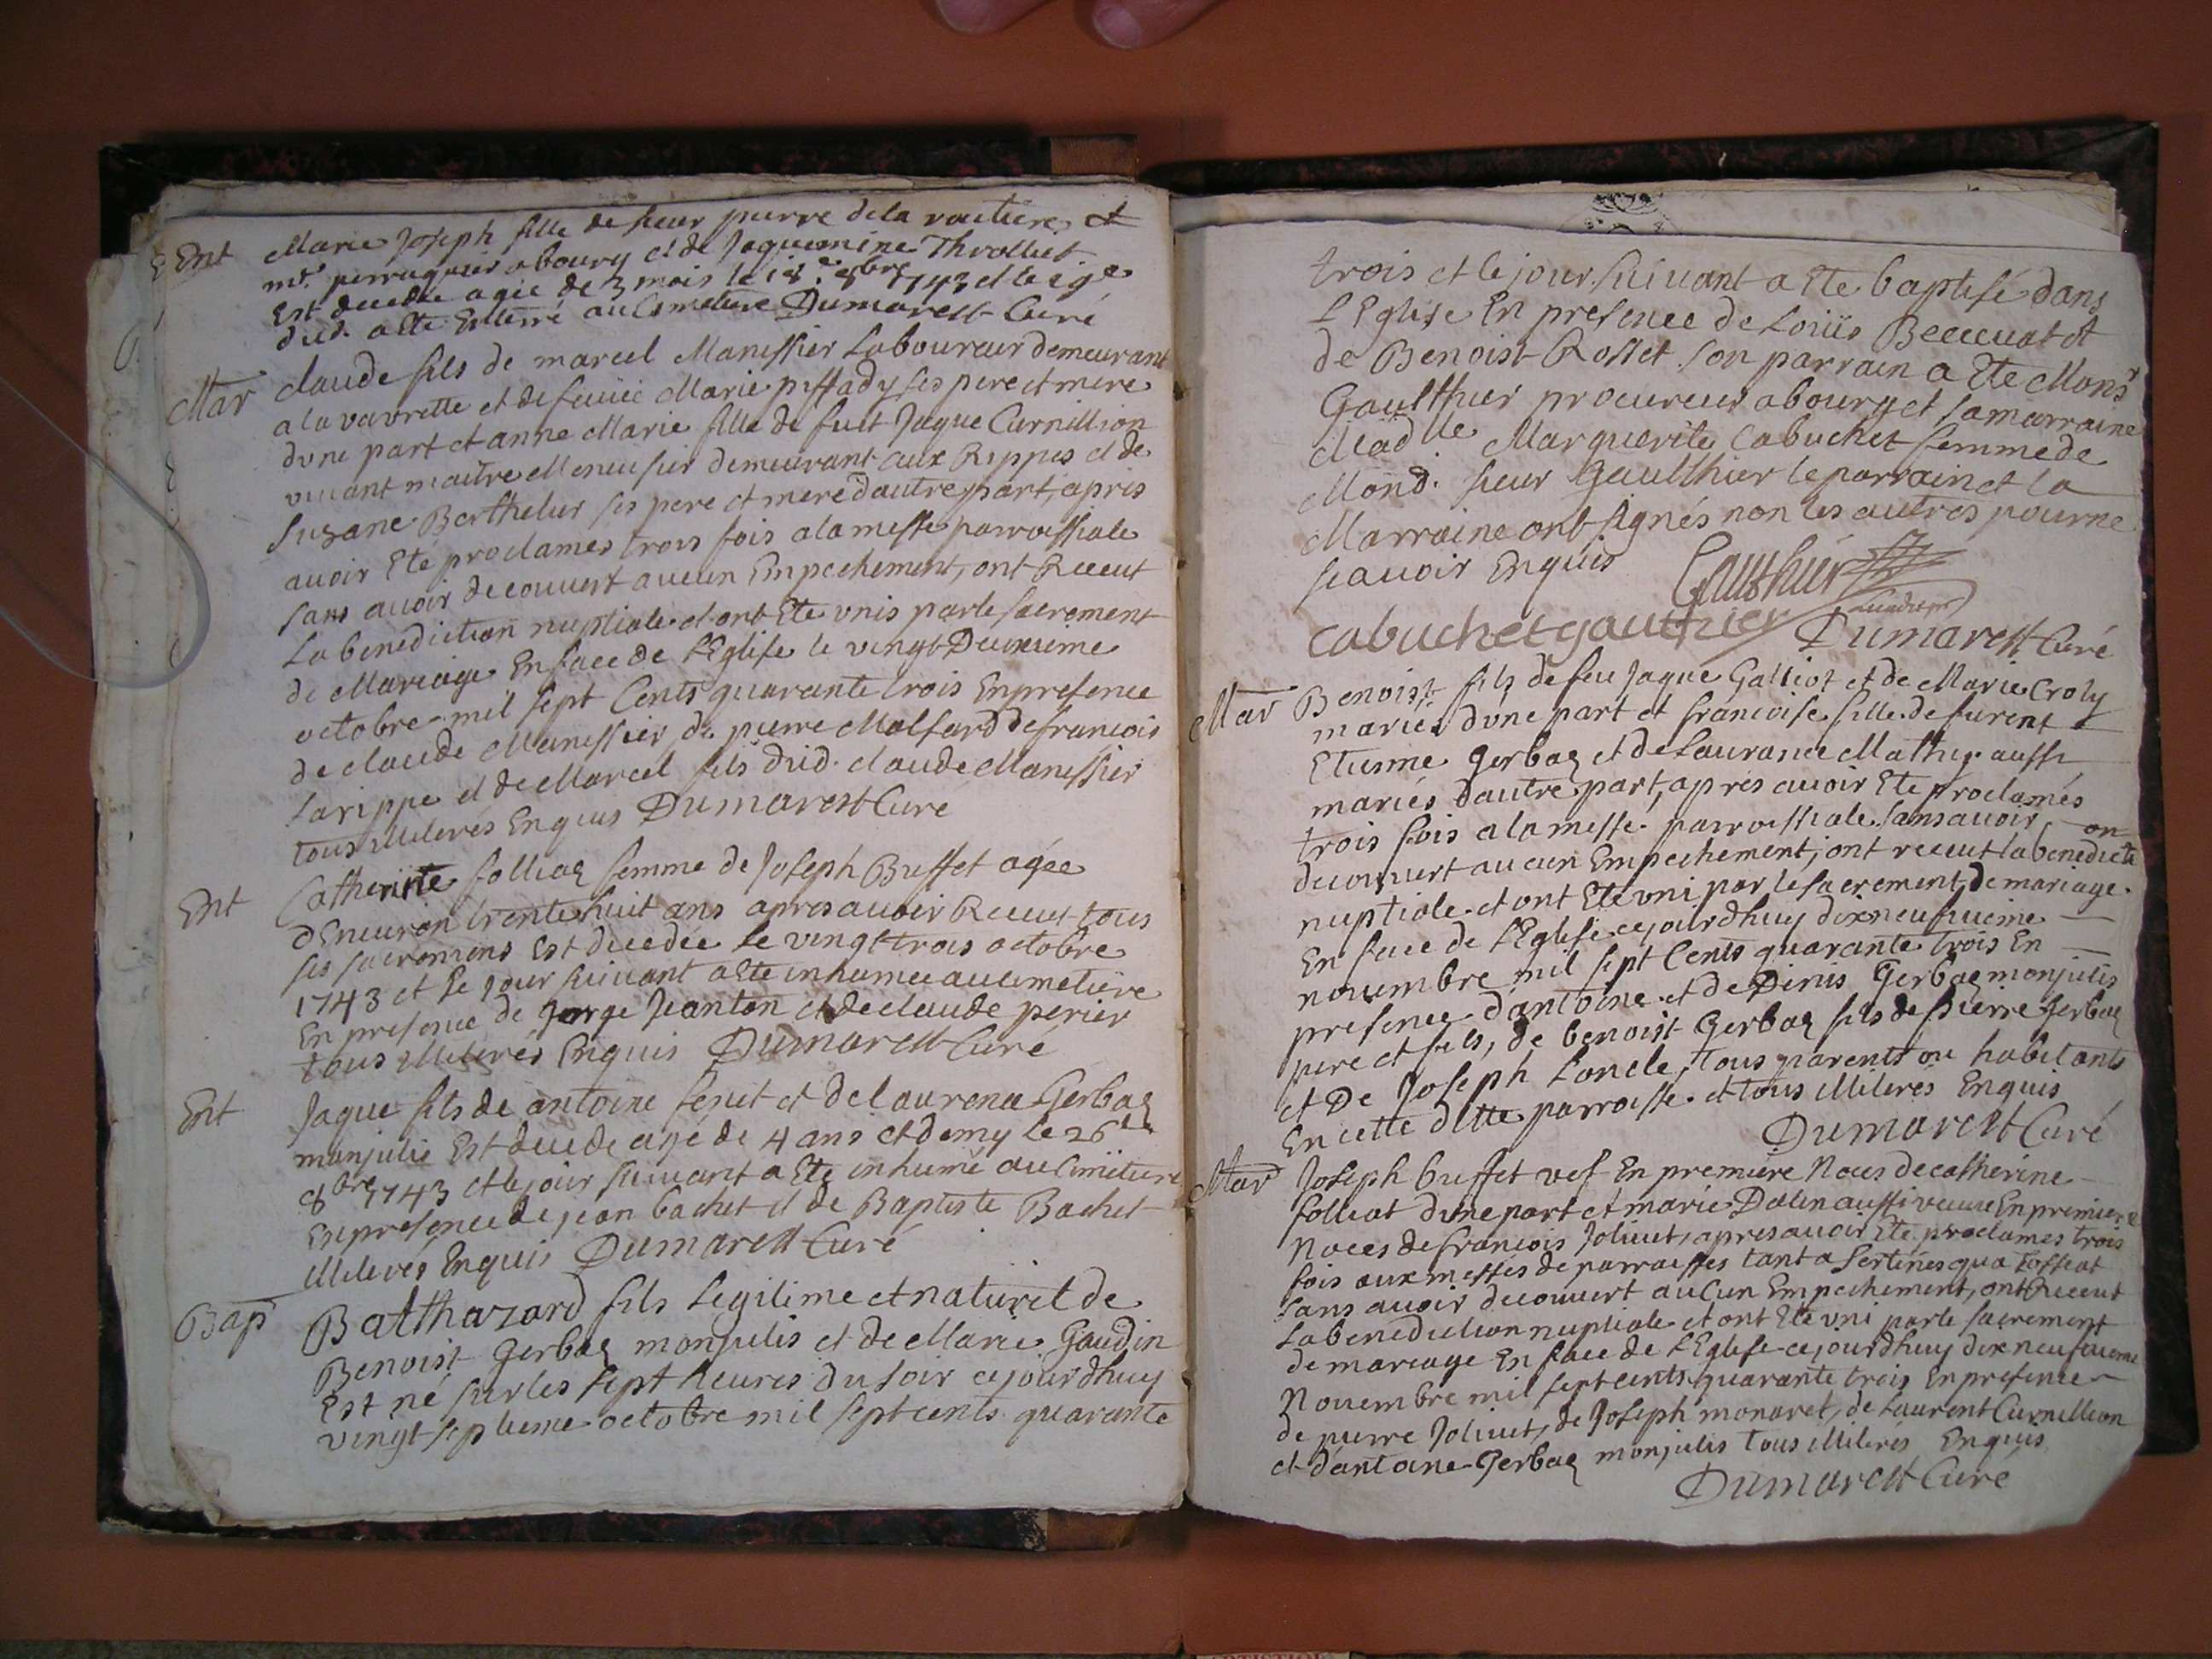 Ent Marie Joseph fille de sieur pierre dela routiere et
mr. perruquier a bourg et de Jaquemine Throlliet
Est decedée agée de 3 mois le 18e 8bre 1743 et le 19e
dud. a Ete Enterré au Cimetiere Dumarest Curé
Mar Claude fils de marcel Manissier Laboureur demeurant
a la vavrette et de feuüe Marie piffady ses pere et mere
dune part et anne Marie fille de fut Jaque Curnillion
vivant maitre Menusier demeurant aux Rippes et de
Suzane Berthelier ses pere et mere dautre part, apres
avoir Ete proclames trois fois a la messe parroissiale
sans avoir decouvert aucun Empechement, ont Receut
La benediction nuptiale et ont Ete vnis par le sacrement
de Mariage En face de l'Eglise le vingt Deuxieme
octobre mil sept Cents quarante trois En presence
de claude Manissier, de pierre Malfard de francois
Larippe et de Marcel fils dud. claude Manissier
tous Illiterés Enquis Dumarest Curé
Ent Catherine folliaq femme de Joseph Buffet agée
dEnuiron trente huit ans apres avoir Receut tous
ses sacremens Est decedée le vingt trois octobre
1743 et le jour suivant a Ete inhumee au cimetiere
En presence de Jorge Jeanton et de claude perier
tous Illiterés Enquis Dumarest Curé
Ent Jaque fils de antoine feuit et de laurence Gerbaq
monjulis Est decede agé de 4 ans et demy le 26e
8bre 1743 et le jour suivant a Ete inhumé au Cimetiere
En presence de jean bachet et de Baptiste Bachet
Illiterés Enquis Dumarest Curé
Bap Balthazard fils Legitime et naturel de
Benoist Gerbaq monjulis et de Marie Gaudin
Est né sur les sept heures du soir cejourdhuy
vingt septieme octobre mil sept cents quarante
trois et le jour suivant a Ete baptisé dans
l'Eglise En presence de Loüis Beccuat et
de Benoist Rosset son parrain a Ete Monsr
Gaulthier procureur a bourg et sa marraine
Madlle Marguerite Cabuchet femme de
Mond. sieur Gaulthier le parrain et la
Marraine ont signés non les autres pour ne
scavoir Enquis Gauthier
cabuchet gauthier Dumarest Curé
Mar Benoist fils de feu Jaque Galliot et de Marie Croly
mariés dune part et francoise fille de furent
Etienne Gerbaq et de Laurance Mathy aussi
mariés dautre part, apres avoir Ete proclamés
trois fois a la messe parroissiale sans avoir
decouvert aucun Empechement, ont receut la benedicti on
nuptiale et ont Ete vni par le sacrement de mariage
En face de l'Eglise cejourdhuy dix neufuieme
nouembre mil sept Cents quarante trois En
presence dantoine et de Denis Gerbaq monjulis
pere et fils, de benoist Gerbaq fils de pierre Gerbaq
et De Joseph Loncle, tous parents ou habitants
En cette ditte parroisse et tous Illiterés Enquis
Dumarest Curé
Mar Joseph buffet vef En premiere Noces de catherine
folliat dune part et marie Dalin aussi veuue En premiere
Noces de francois Joliuet, apres auoir Ete proclames trois
fois aux messes de parroisses tant a Sertines qua tossiat
sans auoir decouvert aucun Empechement, ont Receut
La benediction nuptiale et ont Ete vni par le sacrement
de mariage En face de l'Eglise cejourdhuy dix neufuieme
Nouembre mil sept cents quarante trois En presence
de pierre Joliuet, de Joseph monaret, de Laurent Curnillion
et dantoine Gerbaq monjulis tous Illiterés Enquis
Dumarest Curé